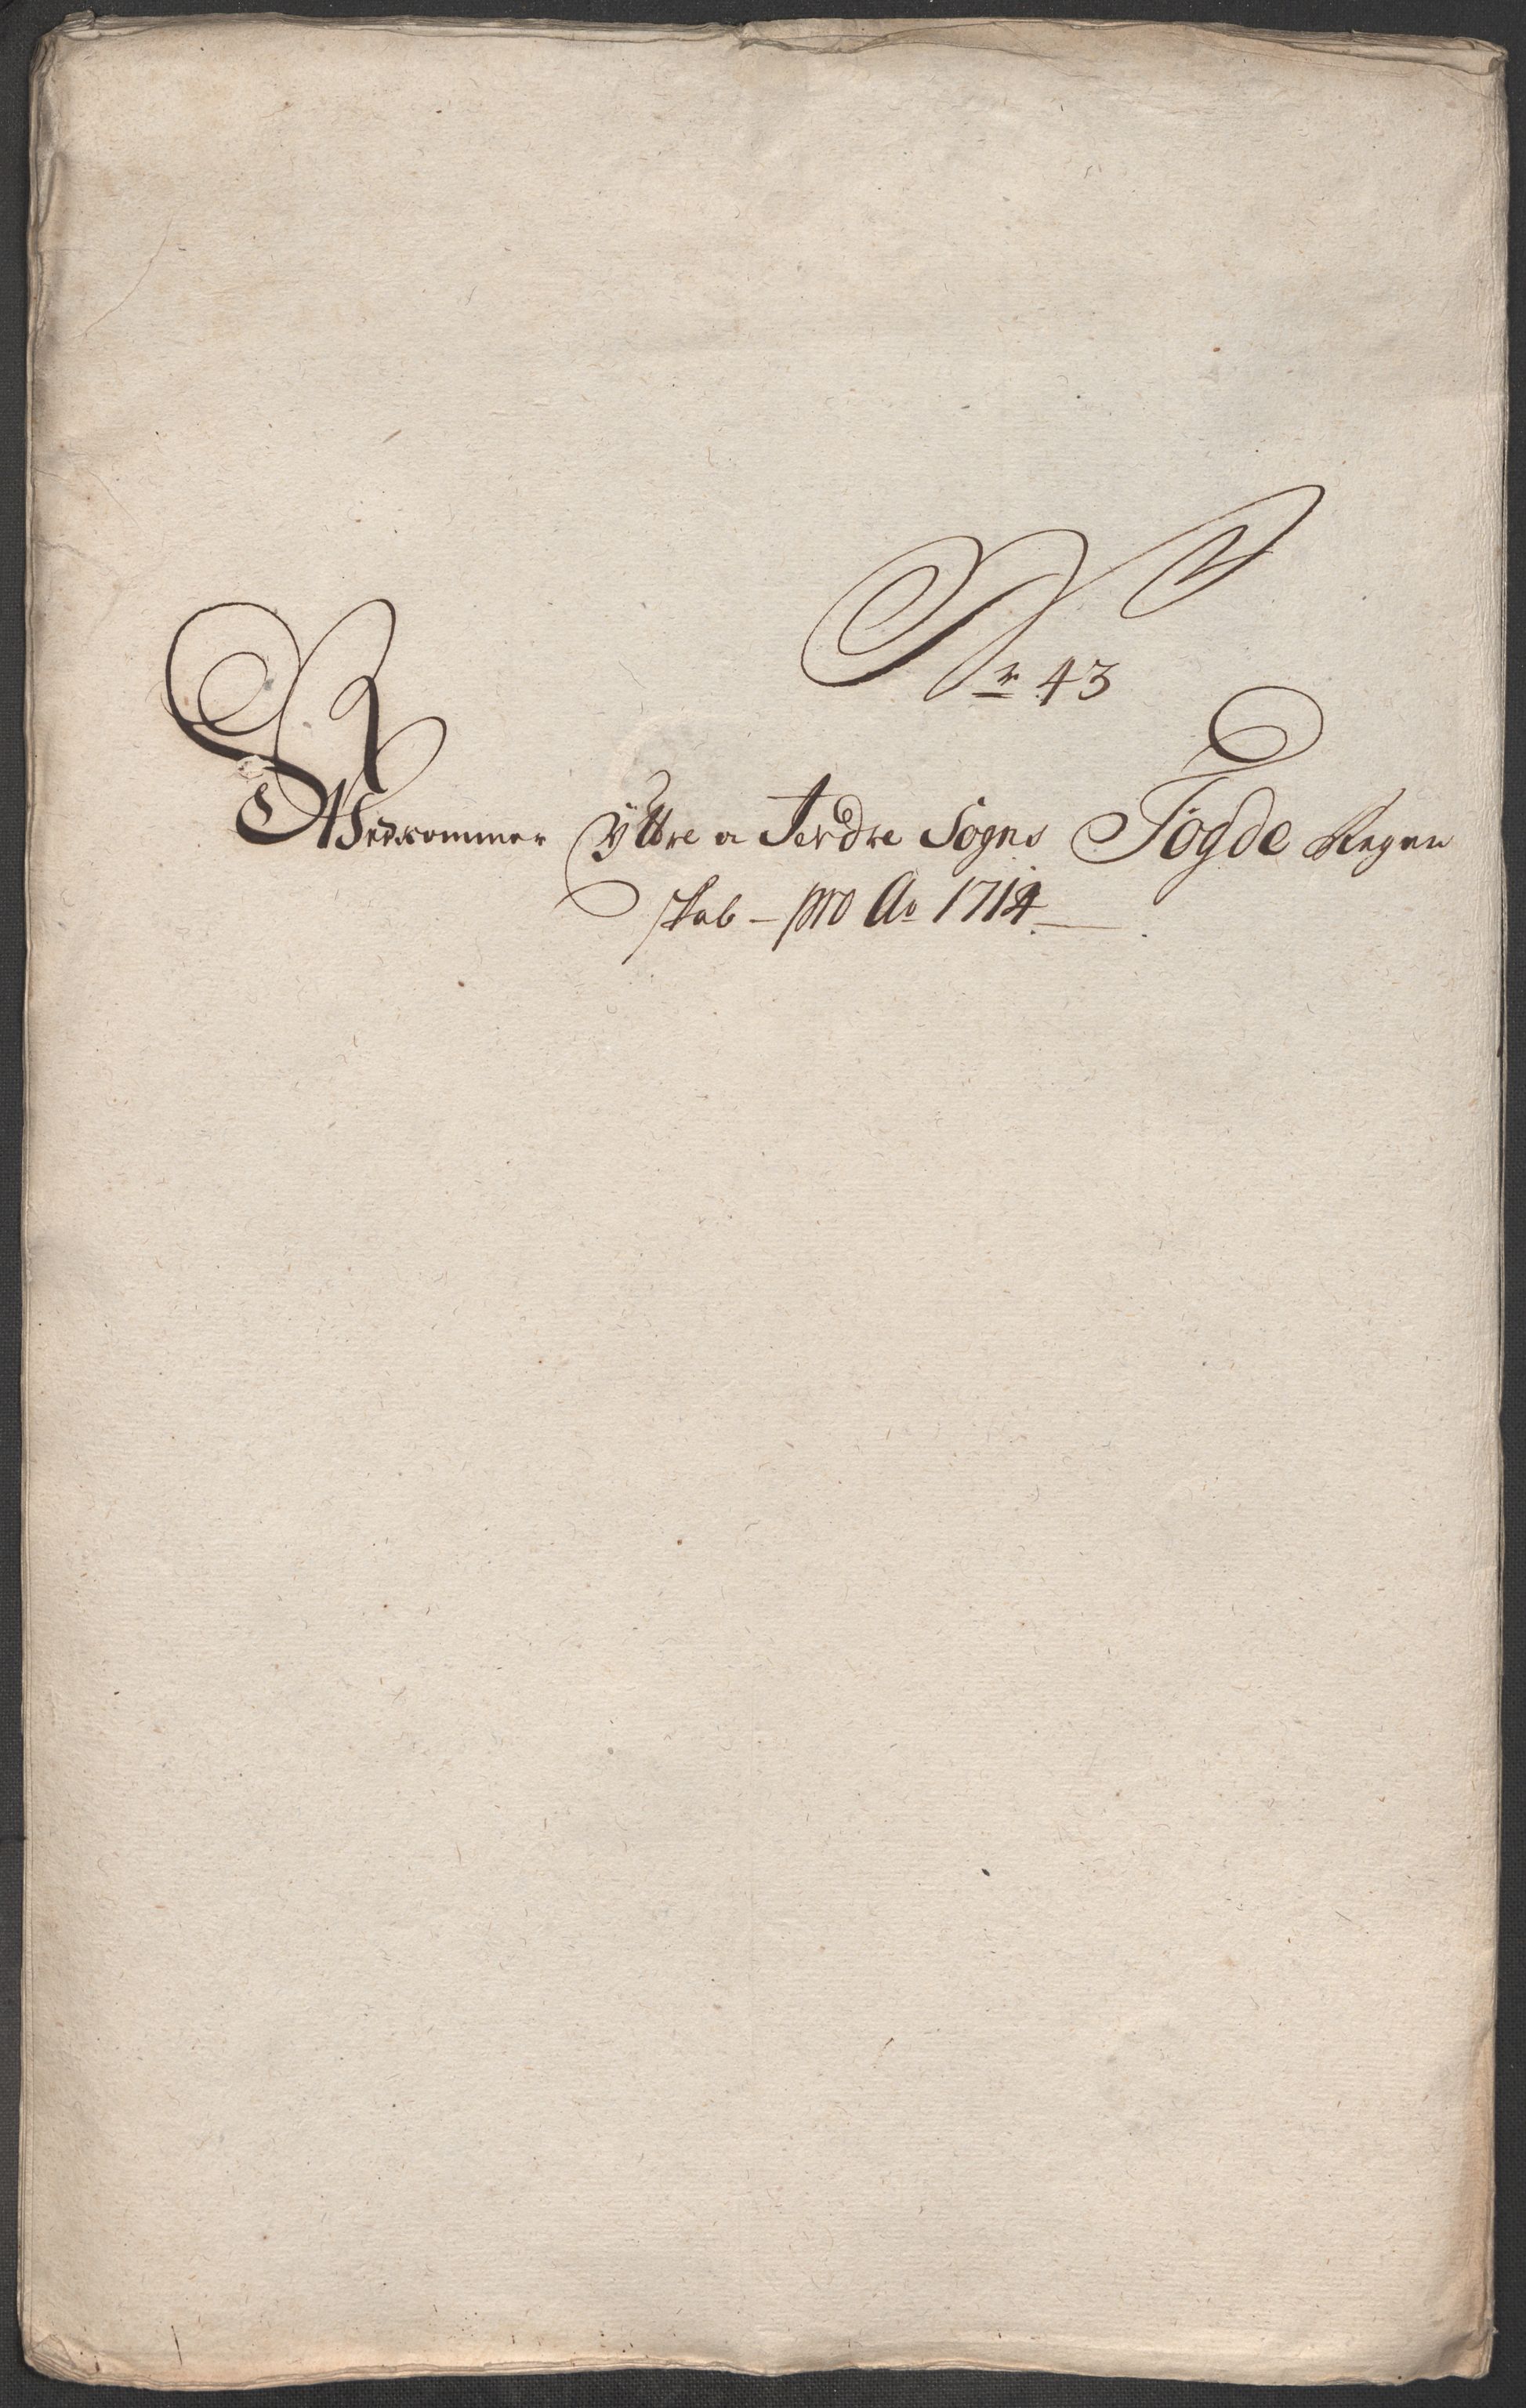 Nr 43
Vedkommer Yttre a Indre Sogns Fögde Regen
skab - pro Ao 1714